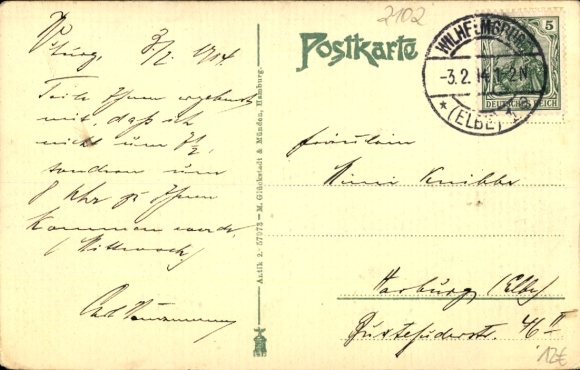 2102
Postkarte
WILHELMSBURG
-3.2.14.1-2N
* (ELBE) 1 a
5
DEUTSCHES REICH
burg, 3/2. 1914.
Teile Ihnen ergebenst
mit, daß ich
nicht um 7½,
sondern um
8 Uhr zu Ihnen
kommen werde.
(Mittwoch)
Fräulein
Mimi Knibbe
Harburg (Elbe)
Buxtehuderstr. 46 II
Antik 2. - 57973 - M. Glückstadt & Münden, Hamburg.
12€